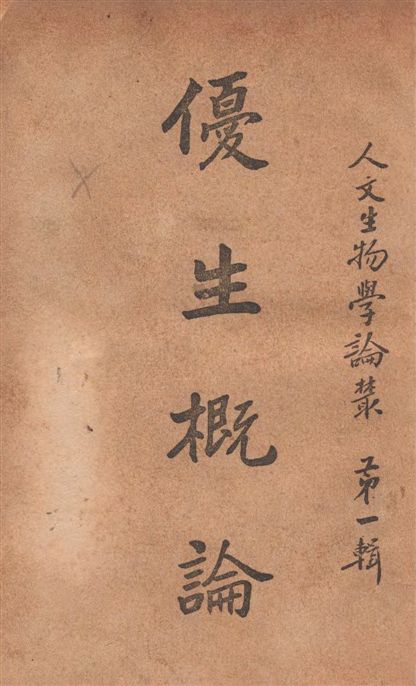 人文生物學論叢 第一輯
優生概論